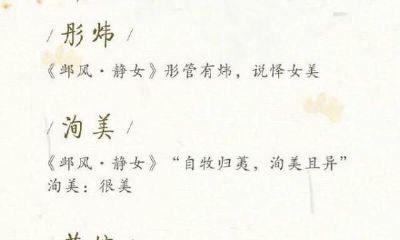 / 彤炜 /
《邶风·静女》彤管有炜，说怿女美
/ 洵美 /
《邶风·静女》“自牧归荑，洵美且异”
洵美：很美